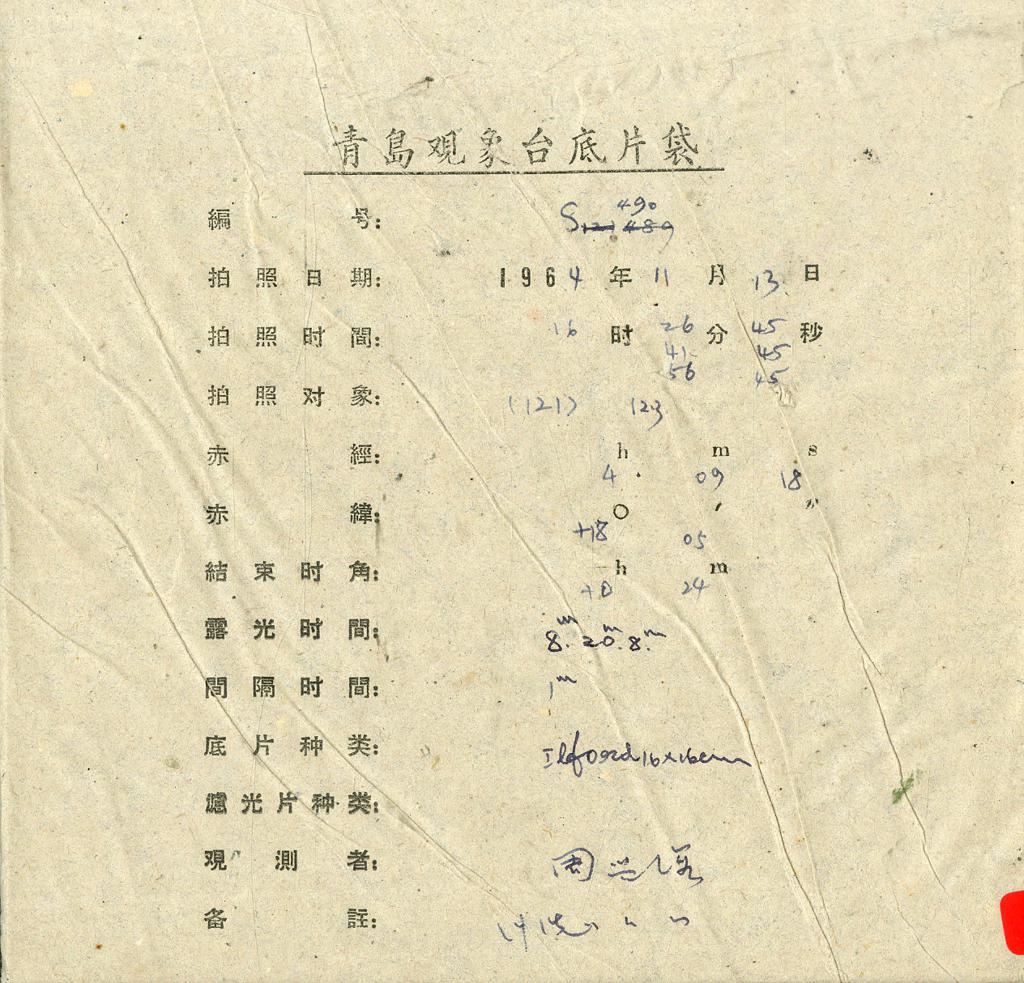 青島观象台底片袋
編号: S 490
121 489
拍照日期: 1964年11月13日
拍照时間: 16时26分45秒
41 45
56 45
拍照对象: (121) 123
赤經: h m s
4 09 18
赤緯: ○ ′ ″
+18 05
結束时角: h m
+0 24
露光时間: 8.m 20.m 8.m
間隔时間: 1m
底片种类: Ilford 16×16cm
濾光片种类:
观測者: 周
备註: